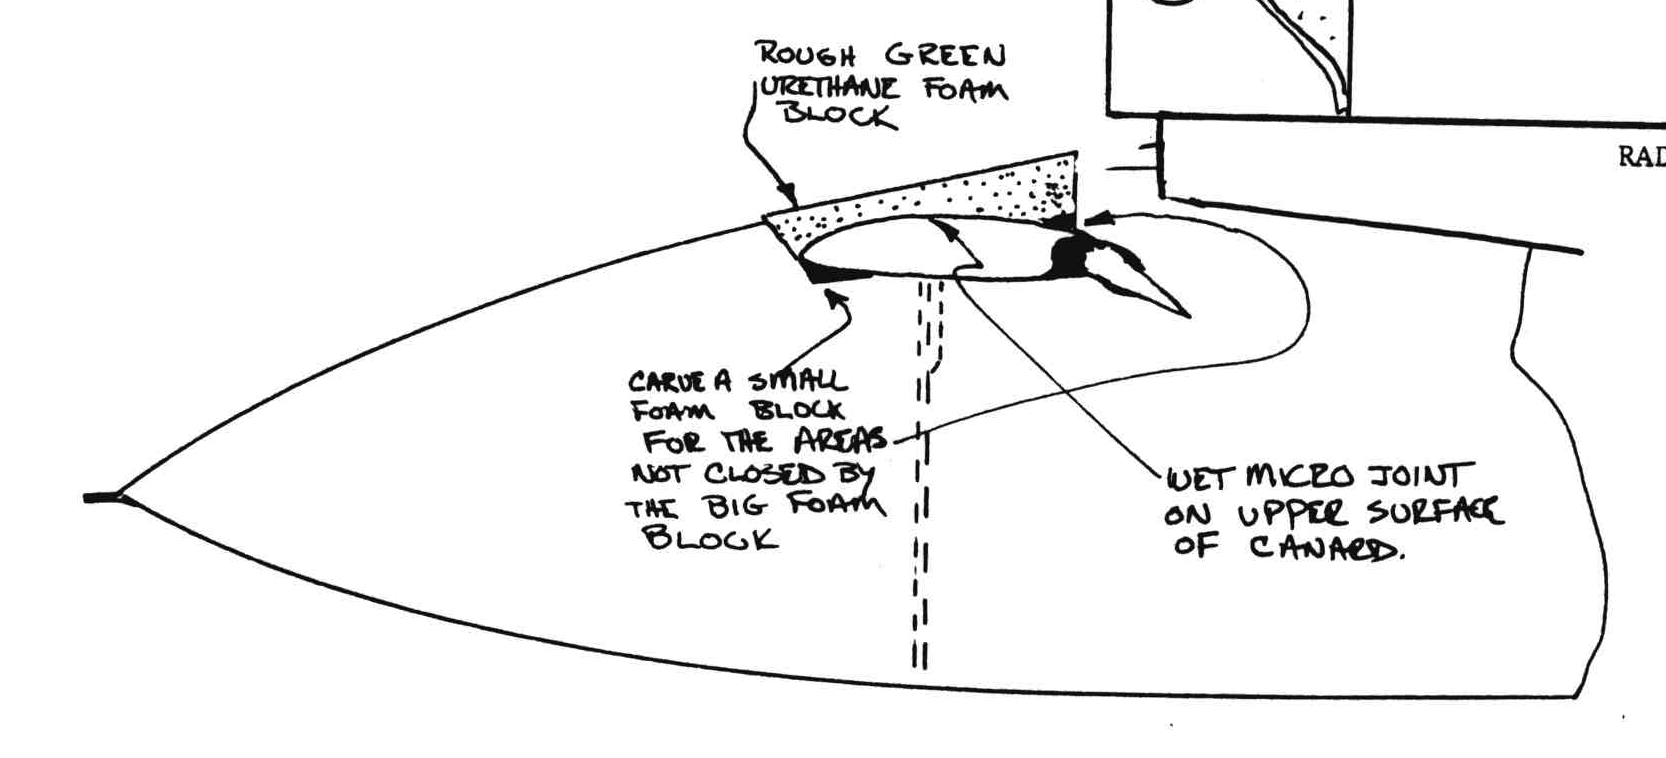 ROUGH GREEN
URETHANE FOAM
BLOCK
RAD
CARVE A SMALL
FOAM BLOCK
FOR THE AREAS
NOT CLOSED BY
THE BIG FOAM
BLOCK
WET MICRO JOINT
ON UPPER SURFACE
OF CANARD.